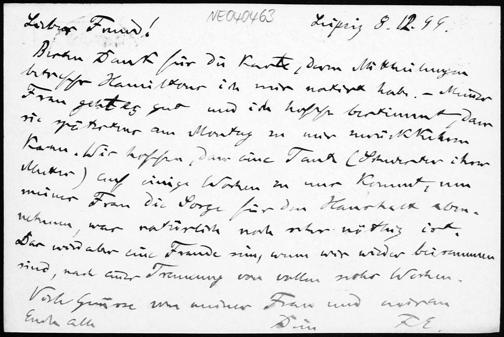 NE040463
Lieber Freund! Leipzig 8.12.99.
Besten Dank für die Karte, deren Mittheilungen
betreffs Hamiltons ich mir notirt habe. – Meiner
Frau geht es gut und ich hoffe bestimmt, dass
sie spätestens am Montag zu mir zurückkehren
kann. Wir hoffen, dass eine Tante (Schwester ihrer
Mutter) auf einige Wochen zu uns kommt, um
meiner Frau die Sorge für den Haushalt abzu-
nehmen, was natürlich noch sehr nöthig ist.
Das wird aber eine Freude sein, wenn wir wieder beisammen
sind, nach einer Trennung von vollen Wochen.
Viele Grüsse von meiner Frau und meinen
Euch alle Dein F.E.